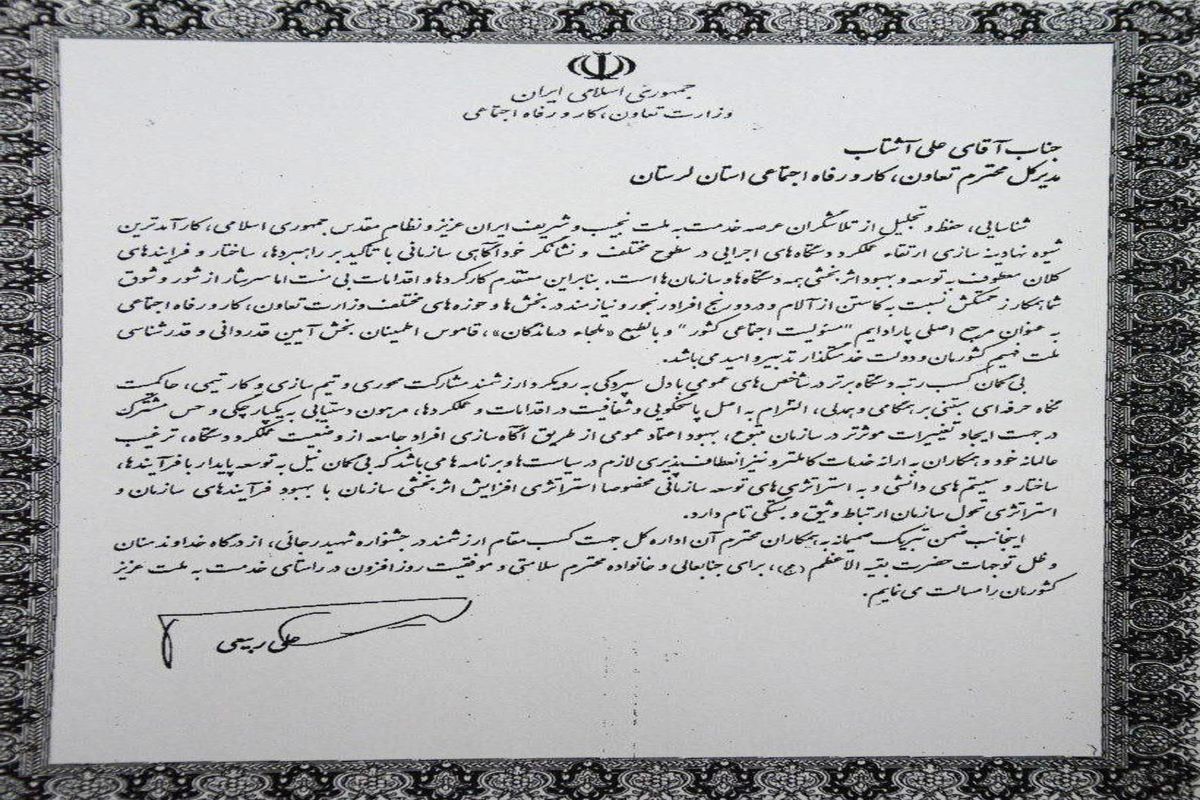 جمهوری اسلامی ایران
وزارت تعاون، کار و رفاه اجتماعی
جناب آقای علی آشتاب
مدیرکل محترم تعاون، کار و رفاه اجتماعی استان لرستان
شناسایی، حفظ و تجلیل از تلاشگران عرصه خدمت به ملت نجیب و شریف ایران عزیز و نظام مقدس جمهوری اسلامی، کارآمدترین
شیوه نهادینه سازی ارتقاء عملکرد دستگاه های اجرایی در سطوح مختلف و نشانگر خودآگاهی سازمانی با تاکید بر راهبردها، ساختار و فرایندهای
کلان معطوف به توسعه و بهبود اثربخشی همه دستگاه ها و سازمان ها است. بنابراین معتقدم کارکردها و اقدامات بی منت اما سرشار از شور و شوق
شما همکار زحمتکش نسبت به کاستن از آلام و درد و رنج افراد رنجور و نیازمند در بخش ها و حوزه های مختلف وزارت تعاون، کار و رفاه اجتماعی
به عنوان مرجع اصلی پارادایم "مسئولیت اجتماعی کشور" و بالطبع «ملجاء درماندگان»، قاموس اطمینان بخش آیین قدردانی و قدرشناسی
ملت فهیم کشورمان و دولت خدمتگذار تدبیر و امید می باشد.
بی گمان کسب رتبه دستگاه برتر در شاخص های عمومی با دل سپردگی به رویکرد ارزشمند مشارکت محوری و تیم سازی و کار تیمی، حاکمیت
نگاه حرفه ای مبتنی بر همگامی و همدلی، التزام به اصل پاسخگویی و شفافیت در اقدامات و عملکردها، مرهون دستیابی به یکپارچگی و حس مشترک
در جهت ایجاد تغییرات موثرتر در سازمان متبوع، بهبود اعتماد عمومی از طریق آگاه سازی افراد جامعه از وضعیت عملکرد دستگاه، ترغیب
عالمانه خود و همکاران به ارائه خدمات کاملتر و نیز انعطاف پذیری لازم در سیاست ها و برنامه ها می باشد که بی گمان نیل به توسعه پایدار با فرآیندها،
ساختار و سیستم های دانشی و به استراتژی های توسعه سازمانی مخصوصا استراتژی افزایش اثربخشی سازمان با بهبود فرآیندهای سازمان و
استراتژی تحول سازمان ارتباط وثیق و بستگی تام دارد.
اینجانب ضمن تبریک صمیمانه به همکاران محترم آن اداره کل جهت کسب مقام ارزشمند در جشنواره شهید رجائی، از درگاه خداوند منان
و ظل توجهات حضرت بقیه الاعظم (عج)، برای جنابعالی و خانواده محترم سلامتی و موفقیت روزافزون در راستای خدمت به ملت عزیز
کشورمان را مسالت می نمایم.
علی ربیعی